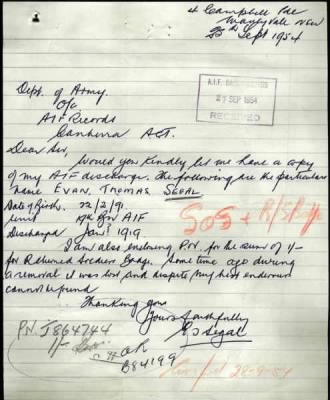 4 Campbell Pde
Manly Vale NSW
25th Sept 1954
A.I.F. BASE RECORDS
27 SEP 1954
RECEIVED
Dept of Army.
O/c
AIF Records
Canberra ACT.
Dear Sir,
Would you kindly let me have a copy
of my AIF discharge. The following are the particulars
name EVAN, THOMAS SEGAL
Date of Birth 22/2/91
Unit Bn AIF
Discharged Jan 1919.
I am also enclosing P.N. for the sum of 1/-
for Returned Soldiers Badge. Some time ago during
a removal it was lost and dispite my best endevours
cannot be found.
Thanking you
Yours faithfully
E Segal
SOS + R/S Badge
P.N. J864744
1/-
OR
B84199
28-9-54